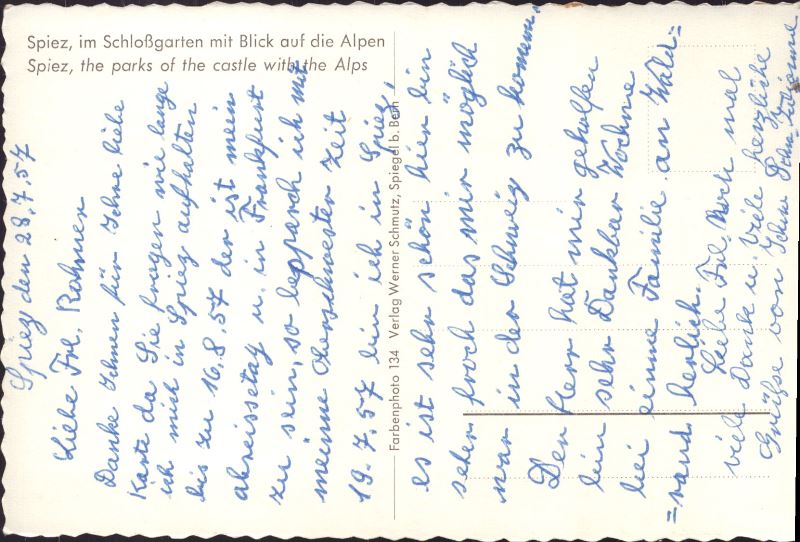 Spiez, im Schloßgarten mit Blick auf die Alpen
Spiez, the parks of the castle with the Alps
Farbenphoto 134 Verlag Werner Schmutz, Spiegel b. Bern
Spiez den 28.7.57
Liebe Frl. Rahmen
Danke Ihnen für Ihre liebe
Karte da Sie fragen wie lange
ich mich in Spiez aufhalten
bis zu 16.8.57 der ist mein
abreissetag u. in Frankfurt
zu sein, so lepparch ich mit
meinne Oberschwester Zeit
19.7.57 bin ich in Spiez,
es ist sehr schön hier bin
sehr froch das mir möglich
war in der Schweiz zu kommen.
Der Herr hat mir geholfen
bin sehr Dankbar Wochne
bei einme Familie an Wald=
=rand herlich.
Liebe Frl. Noch mal
viele Dank u. Viele herzliche
Grüße von Ihre